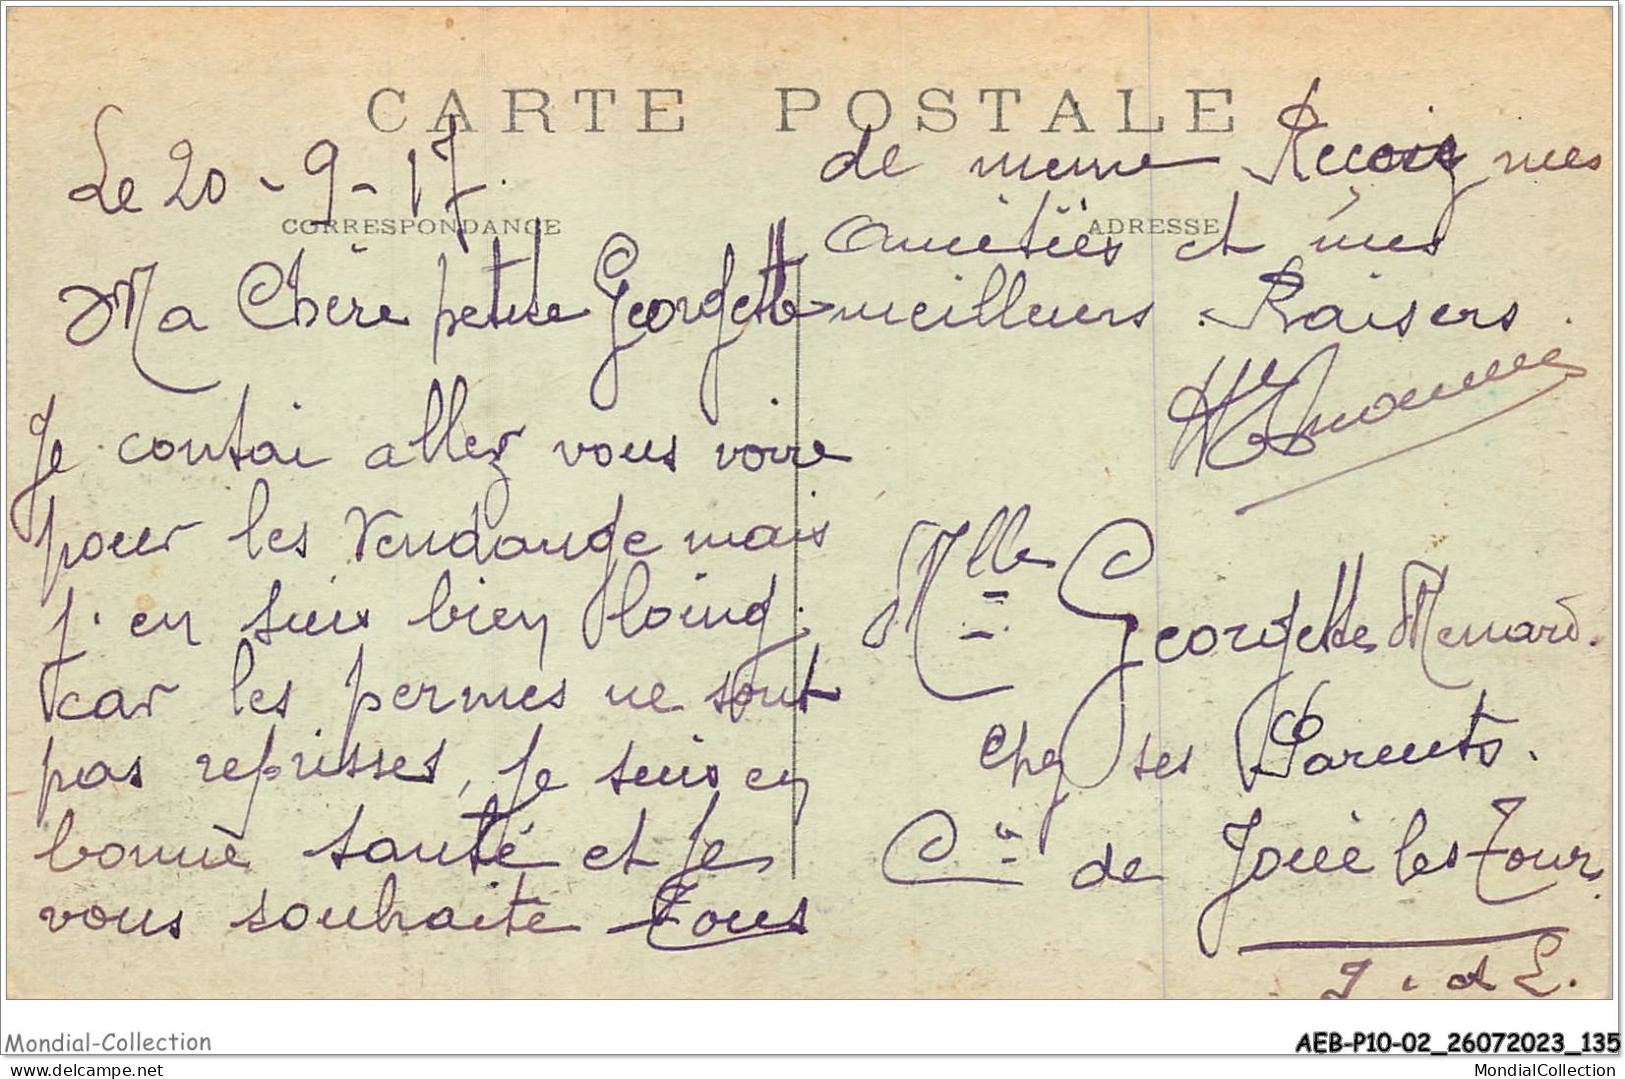 CARTE POSTALE
Le 20-9-17.
CORRESPONDANCE
Ma Chère petite Georgette
Je contai allez vous voire
pour les Vendange mais
j'en suis bien loing.
car les permes ne sont
pas reprisses, je suis en
bonne santé et je
vous souhaite tous
de meme Recoiz mes
ADRESSE
Amitiés et mes
meilleuers Baisers.
Mlle Georgette Menard.
chez ses Parents.
Cne de Joué les Tour.
I. et L.
Mondial-Collection
AEB-P10-02_26072023_135
mondial-collection.net
MondialCollection